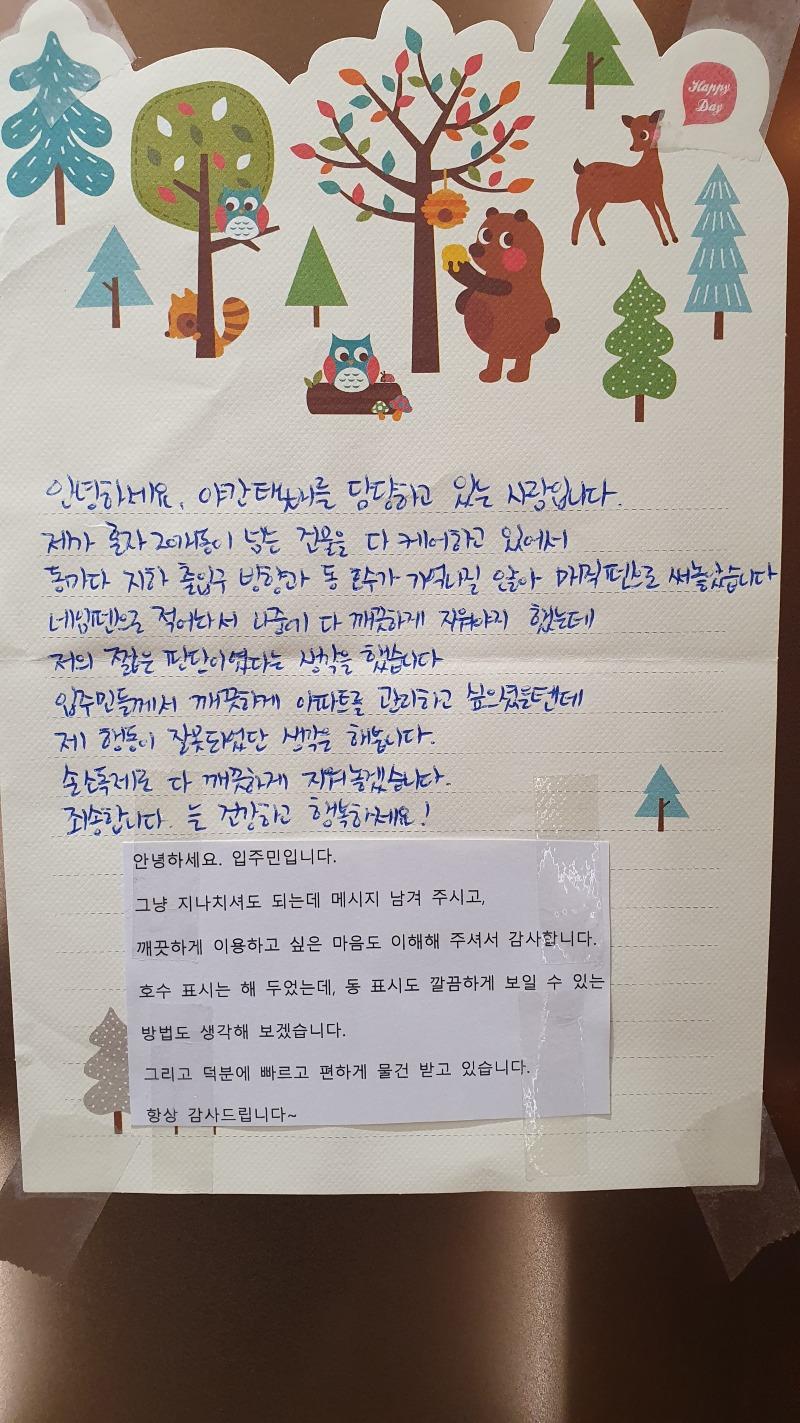 Happy
Day
안녕하세요, 야간택배를 담당하고 있는 사람입니다.
제가 혼자 20개동이 넘는 건물을 다 케어하고 있어서
동마다 지하 출입구 방향과 동 호수가 기억나질 않아 매직펜으로 써놓았습니다
네임펜으로 적어놔서 나중에 다 깨끗하게 지워야지 했는데
저의 짧은 판단이였다는 생각을 했습니다
입주민들께서 깨끗하게 아파트를 관리하고 싶으셨을텐데
제 행동이 잘못되었단 생각을 해봅니다.
손소독제로 다 깨끗하게 지워놓겠습니다.
죄송합니다. 늘 건강하고 행복하세요!
안녕하세요. 입주민입니다.
그냥 지나치셔도 되는데 메시지 남겨 주시고,
깨끗하게 이용하고 싶은 마음도 이해해 주셔서 감사합니다.
호수 표시는 해 두었는데, 동 표시도 깔끔하게 보일 수 있는
방법도 생각해 보겠습니다.
그리고 덕분에 빠르고 편하게 물건 받고 있습니다.
항상 감사드립니다~